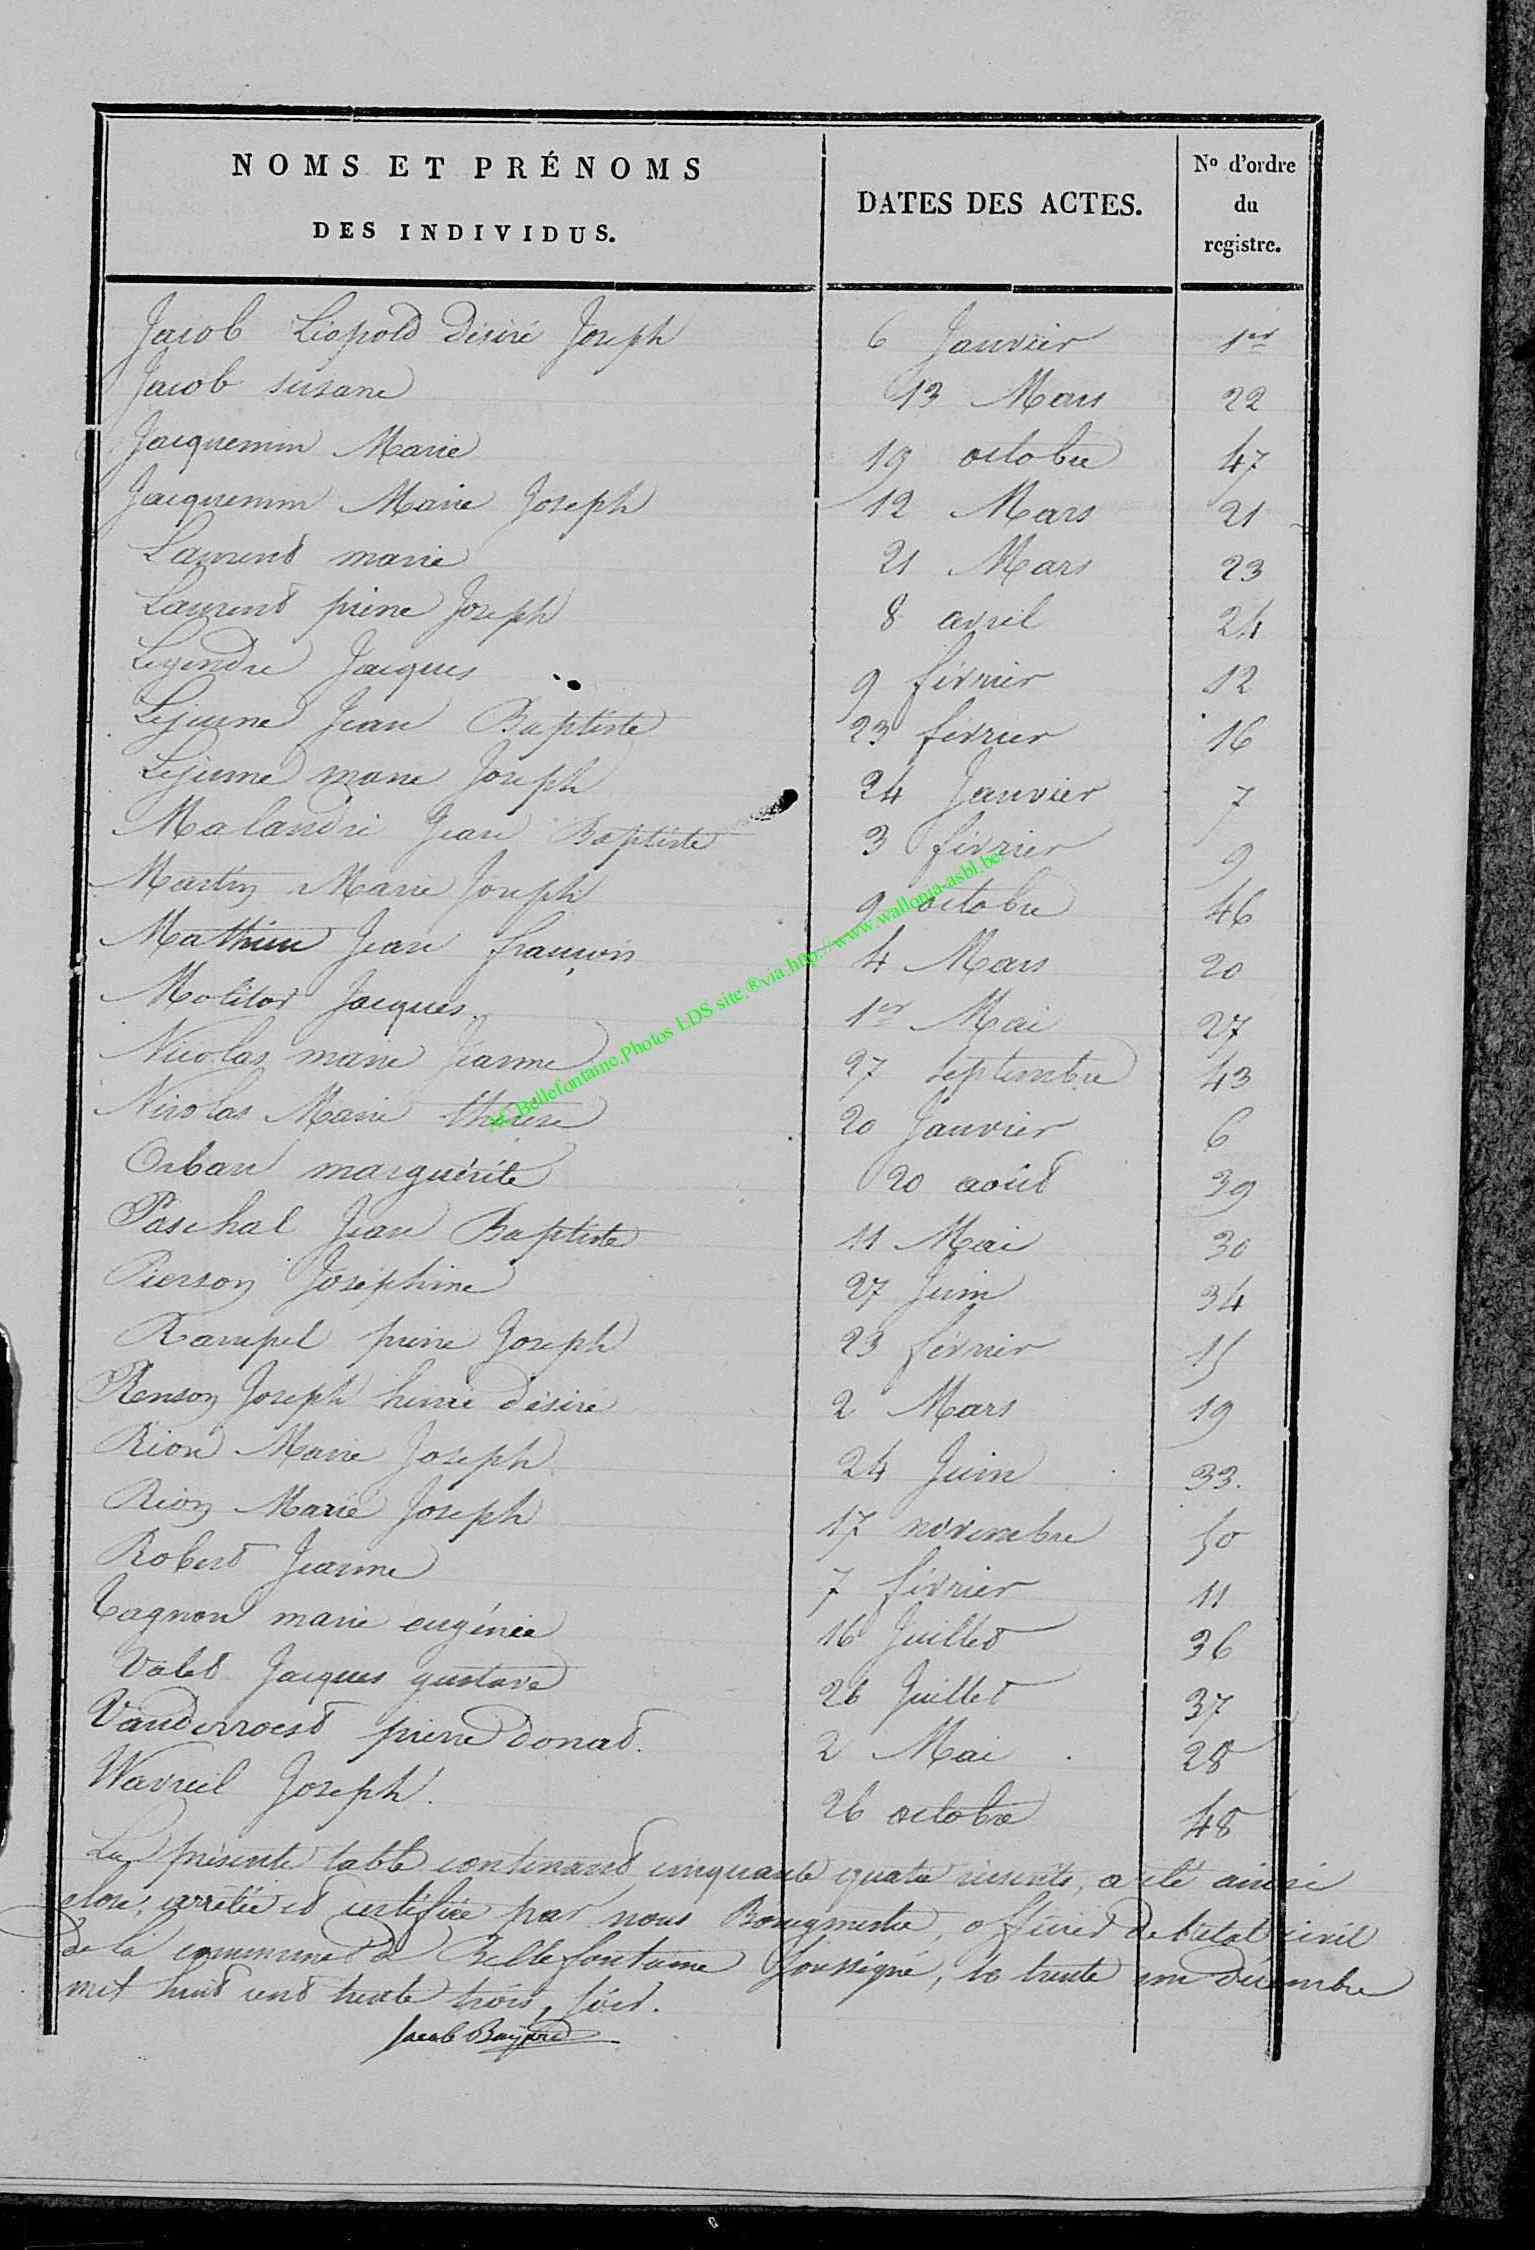 NOMS ET PRÉNOMS
DES INDIVIDUS.
DATES DES ACTES.
No d'ordre
du
registre.
Jacob Léopold désiré Joseph 6 Janvier 1er
Jacob susane 13 Mars 22
Jacquemin Marie 19 octobre 47
Jacquemin Marie Joseph 12 Mars 21
Laurent marie 21 Mars 23
Laurent pierre Joseph 8 avril 24
Legendre Jacques 9 février 12
Lejeune Jean Baptiste 23 février 16
Lejeune marie Joseph 24 Janvier 7
Malandri Jean Baptiste 3 février 9
Martin Marie Joseph 9 octobre 46
Mathieu Jean françois 4 Mars 20
Molitor Jacques 1er Mai 27
Nicolas marie Jeanne 27 septembre 43
Nicolas Marie thérèse 20 Janvier 6
Orban marguérite 20 août 39
Paschal Jean Baptiste 11 Mai 30
Pierson Joséphine 27 Juin 34
pierre Joseph 23 février 15
Renson Joseph henri désiré 2 Mars 19
Rion Marie Joseph 24 Juin 33.
Rion Marie Joseph 17 novembre 50
Robert Jeanne 7 février 11
Tagnon marie eugénie 16 Juillet 36
Valet Jacques gustave 26 Juillet 37
pierre donat. 2 Mai 28
Joseph. 26 octobre 48
La présente table contenant cinquante quatre inscrits, a été ainsi
close, arrêtée et certifiée par nous Bourgmestre, officier de l'état civil
de la commune de Bellefontaine soussigné, le trente un décembre
mil huit cent trente trois, soir.
Jacob Bayard
Bellefontaine.Photos LDS site.®.via.http://www.wallonia-asbl.be/